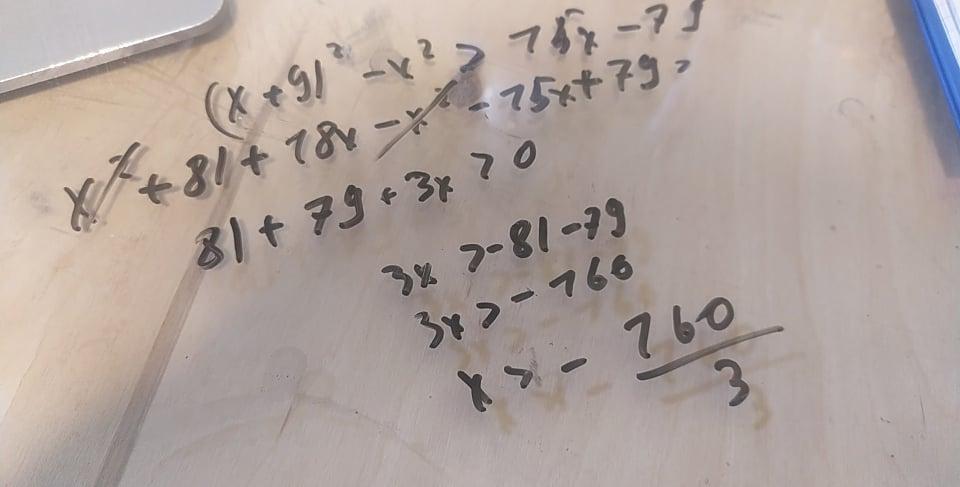 (x+9)² - x² > 15x - 79
x² + 81 + 18x - x² - 15x + 79 >
81 + 79 + 3x > 0
3x > -81 - 79
3x > - 160
x > - 160/3